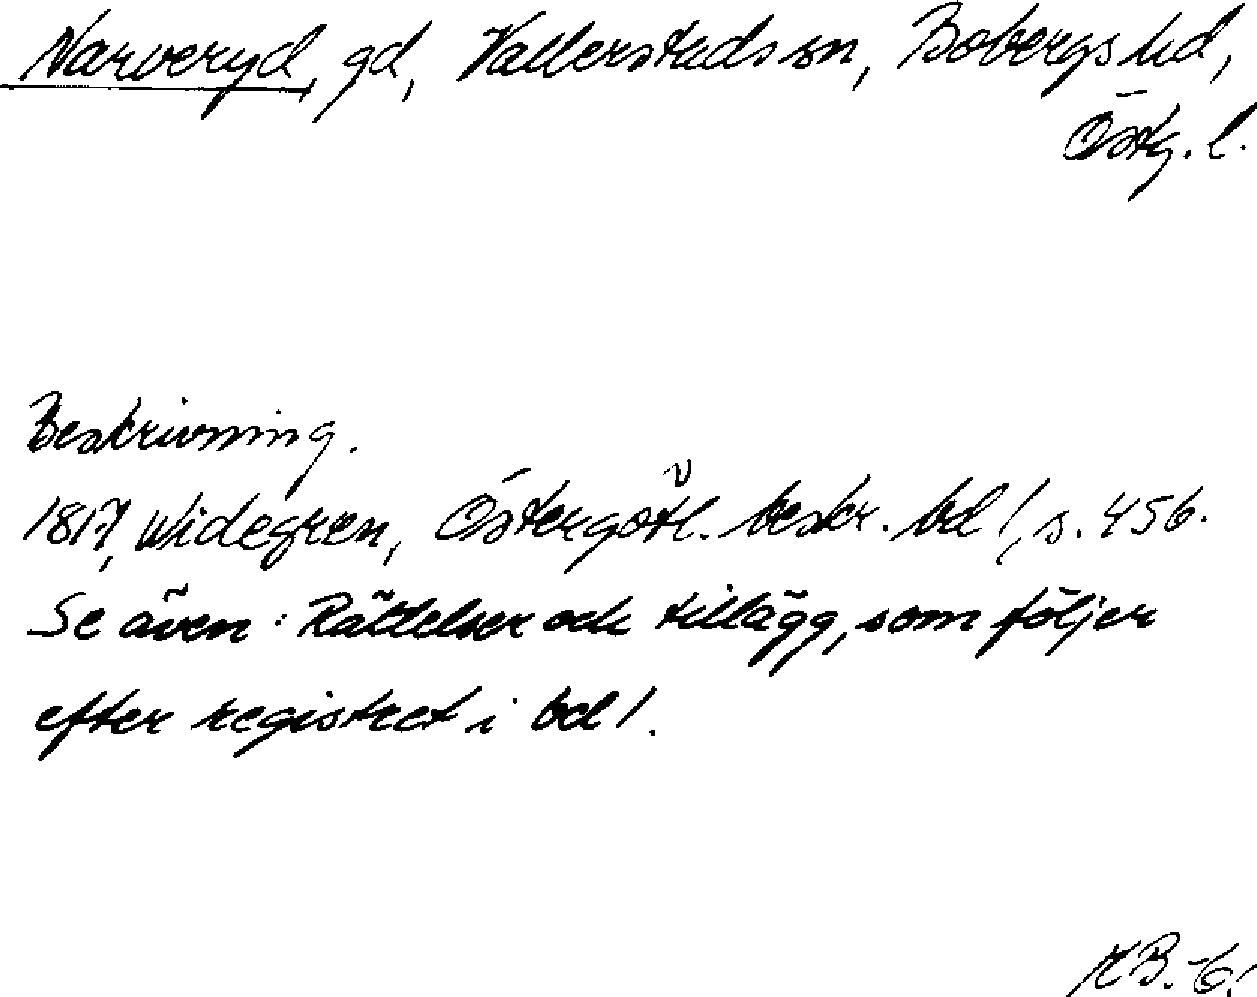 Narveryd, gd, Vallerstads sn, Bobergs hd,
Östg. l.
Beskrivning.
1817, Widegren, Östergötl. beskr. bd 1, s. 456.
Se även: Rättelser och tillägg, som följer
efter registret i bd 1.